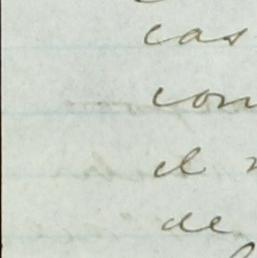 cas
con
el
de